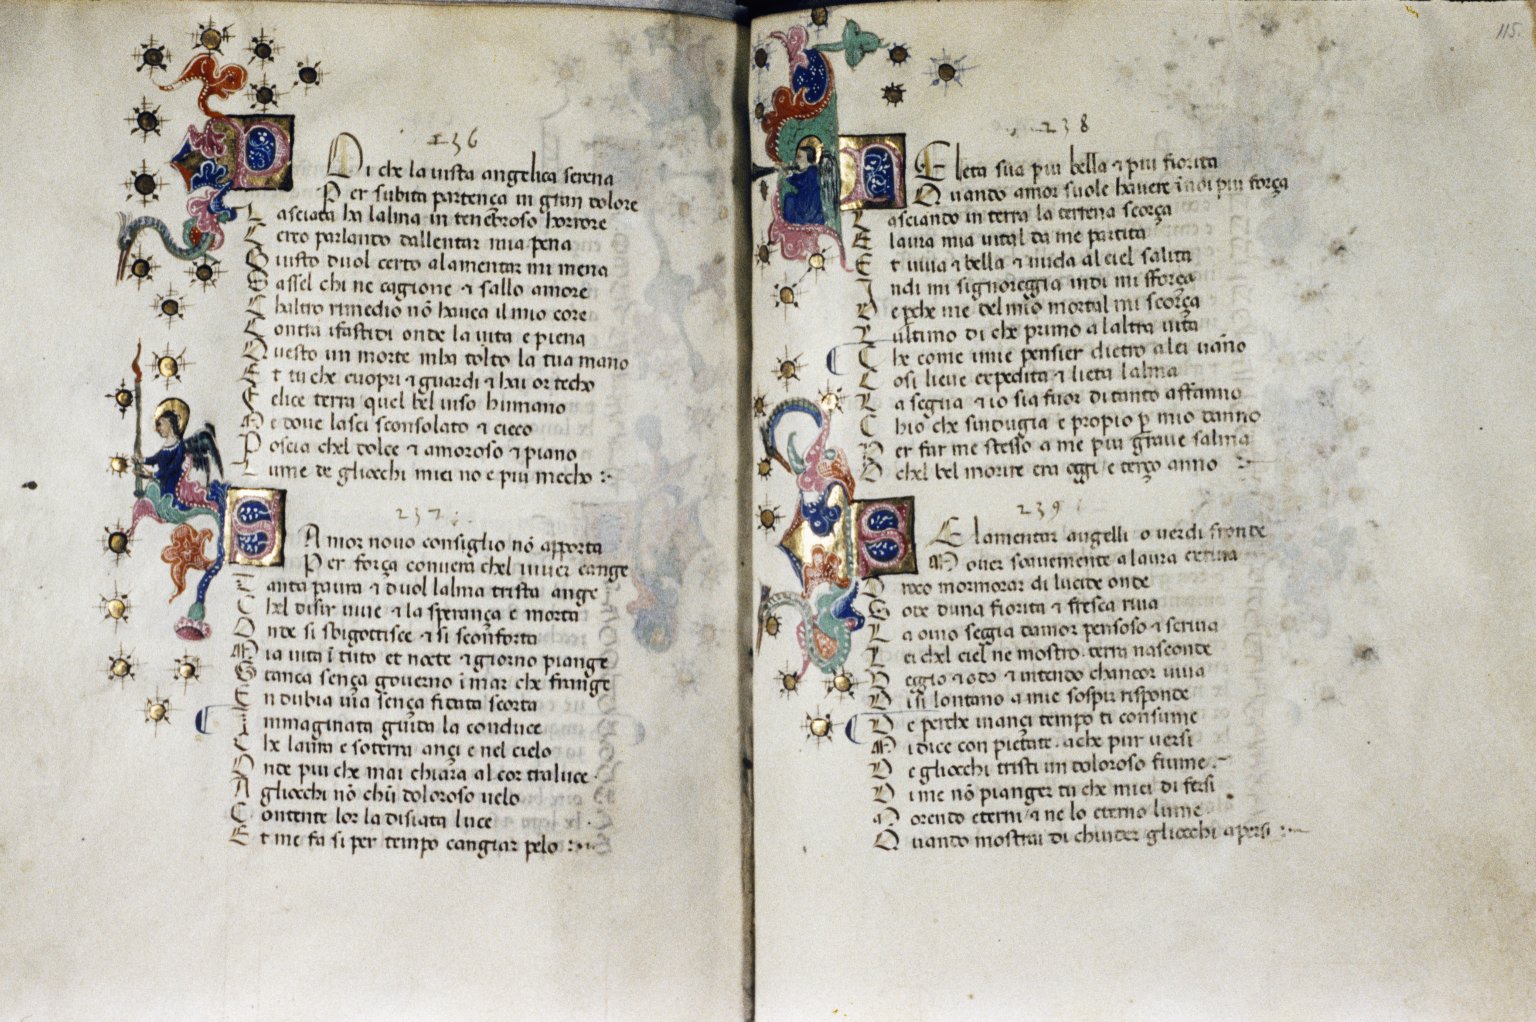 236
Poi che la vista angelica serena
Per subita partença in gran dolore
Lasciata ha lalma in tenebroso horrore
Cerco parlando dallentar mia pena
Giusto duol certo alamentar mi mena
Sassel chi ne cagione & sallo amore
Chaltro rimedio nō havea il mio core
Contra ifastidi onde la vita e piena
Questo un morte mha tolto la tua mano
Et tu che cuopri & guardi & hai or techo
Felice terra quel bel viso humano
Me dove lasci sconsolato & cieco
Poscia chel dolce & amoroso & piano
Lume de gliocchi miei no e piu mecho :~
237
SAmor novo consiglio nō apporta
Per força converra chel viver cange
Tanta paura & duol lalma trista ange
Chel disir vive & la sperança e morta
Onde si sbigottisce & si sconforta
Mia vita ī tuto et nocte & giorno piange
Stanca sença governo ī mar che frange
En dubia via sença fidata scorta
Immaginata guida la conduce
Che laura e soterra ançi e nel cielo
Onde piu che mai chiara al cor traluce
Agliocchi nō chū doloroso velo
Contente lor la disiata luce
Et me fa si per tempo cangiar pelo :~
115.
238
Neleta sua piu bella & piu fiorita
Quando amor suole havere ī noi piu força
Lasciando in terra la terrena scorça
E laura mia vital da me partita
Et viva & bella & nuda al ciel salita
Indi mi signoreggia indi mi sforça
De perche me del mio mortal mi scorça
Lultimo di che primo a laltra vita
Che come imie pensier dietro a lei vāno
Cosi lieve expedita & lieta lalma
La segua & io sia fuor di tanto affanno
Chio che sindugia e propio p mio danno
Per far me stesso a me piu grave salma
O chel bel morire era oggi e terço anno
239
SE lamentar augelli o verdi fronde
Mover soavemente a laura estiva
O roco mormorar di lucide onde
Sode duna fiorita & fresca riva
La ovio seggia damor pensoso & scriva
Lei chel ciel ne mostro terra nasconde
Veggio & odo & intendo chancor viva
Di si lontano a mie sospir risponde
De perche inançi tempo ti consume
Mi dice con pietate ache pur versi
De gliocchi tristi un doloroso fiume
Di me nō pianger tu che miei di fersi
Morendo eterni & ne lo eterno lume
Quando mostrai di chiuder gliocchi apersi :~